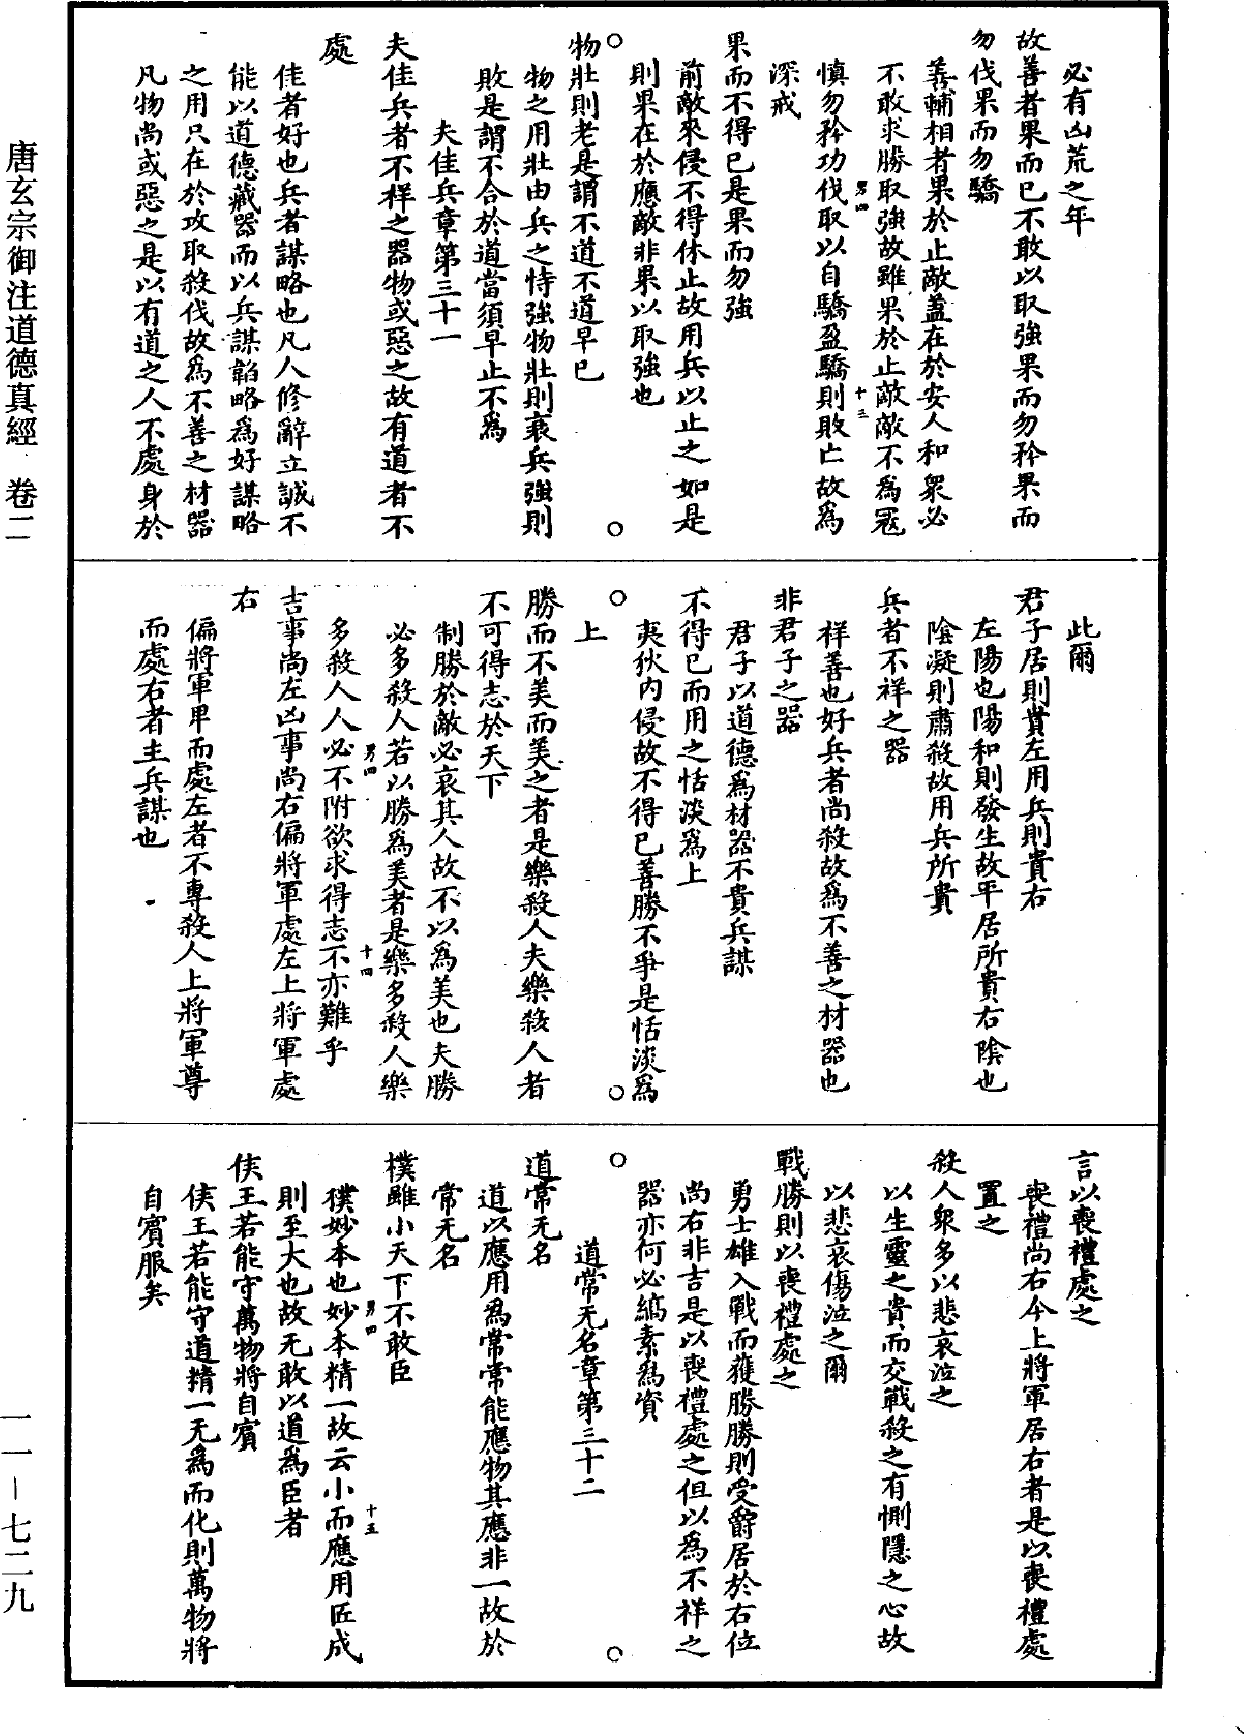 必有凶荒之年
故善者果而已不敢以取強果而勿矜果而
勿伐果而勿驕
善輔相者果於止敵蓋在於安人和衆必
不敢求勝取強故雖果於止敵敵不爲寇
慎勿矜功伐取以自驕盈驕則敗亡故爲
深戒
果而不得已是果而勿強
前敵來侵不得休止故用兵以止之如是
則果在於應敵非果以取強也
物壯則老是謂不道不道早已
物之用壯由兵之恃強物壯則衰兵強則
敗是謂不合於道當須早止不爲
夫佳兵章第三十一
夫佳兵者不祥之器物或惡之故有道者不
處
佳者好也兵者謀略也凡人修辭立誠不
能以道德藏器而以兵謀韜略爲好謀略
之用只在於攻取殺伐故爲不善之材器
凡物尚或惡之是以有道之人不處身於
此爾
君子居則貴左用兵則貴右
左陽也陽和則發生故平居所貴右陰也
陰凝則肅殺故用兵所貴
兵者不祥之器
祥善也好兵者尚殺故爲不善之材器也
非君子之器
君子以道德爲材器不貴兵謀
不得已而用之恬淡爲上
夷狄内侵故不得已善勝不爭是恬淡爲
上
勝而不美而美之者是樂殺人夫樂殺人者
不可得志於天下
制勝於敵必哀其人故不以爲美也夫勝
必多殺人若以勝爲美者是樂多殺人樂
多殺人人必不附欲求得志不亦難乎
吉事尚左凶事尚右偏將軍處左上將軍處
右
偏將軍卑而處左者不專殺人上將軍尊
而處右者主兵謀也
言以喪禮處之
喪禮尚右今上將軍居右者是以喪禮處
置之
殺人衆多以悲哀泣之
以生靈之貴而交戰殺之有惻隱之心故
以悲哀傷泣之爾
戰勝則以喪禮處之
勇士雄入戰而獲勝勝則受爵居於右位
尚右非吉是以喪禮處之但以爲不祥之
器亦何必縞素爲資
道常无名章第三十二
道常无名
道以應用爲常常能應物其應非一故於
常无名
樸雖小天下不敢臣
樸妙本也妙本精一故云小而應用匠成
則至大也故无敢以道爲臣者
侯王若能守萬物將自賓
侯王若能守道精一无爲而化則萬物將
自賓服矣
男四 十三
男四 十四
男四 十五
唐玄宗御注道德真經 卷二
一一—七二九